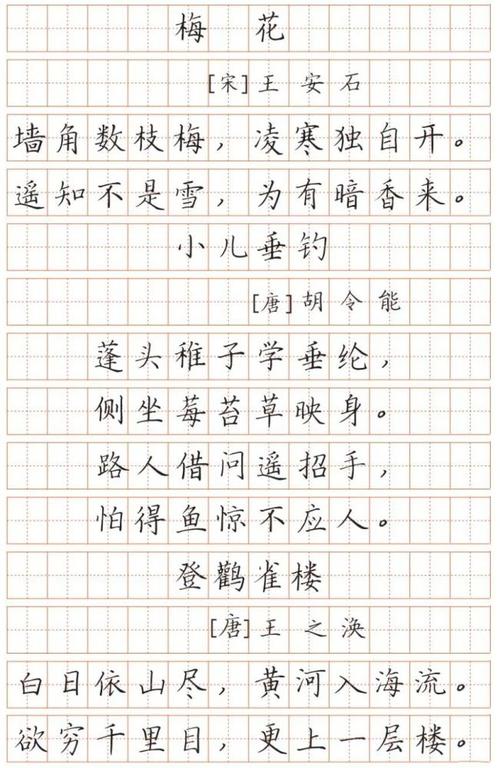 梅花
[宋]王安石
墙角数枝梅，凌寒独自开。
遥知不是雪，为有暗香来。
小儿垂钓
[唐]胡令能
蓬头稚子学垂纶，
侧坐莓苔草映身。
路人借问遥招手，
怕得鱼惊不应人。
登鹳雀楼
[唐]王之涣
白日依山尽，黄河入海流。
欲穷千里目，更上一层楼。